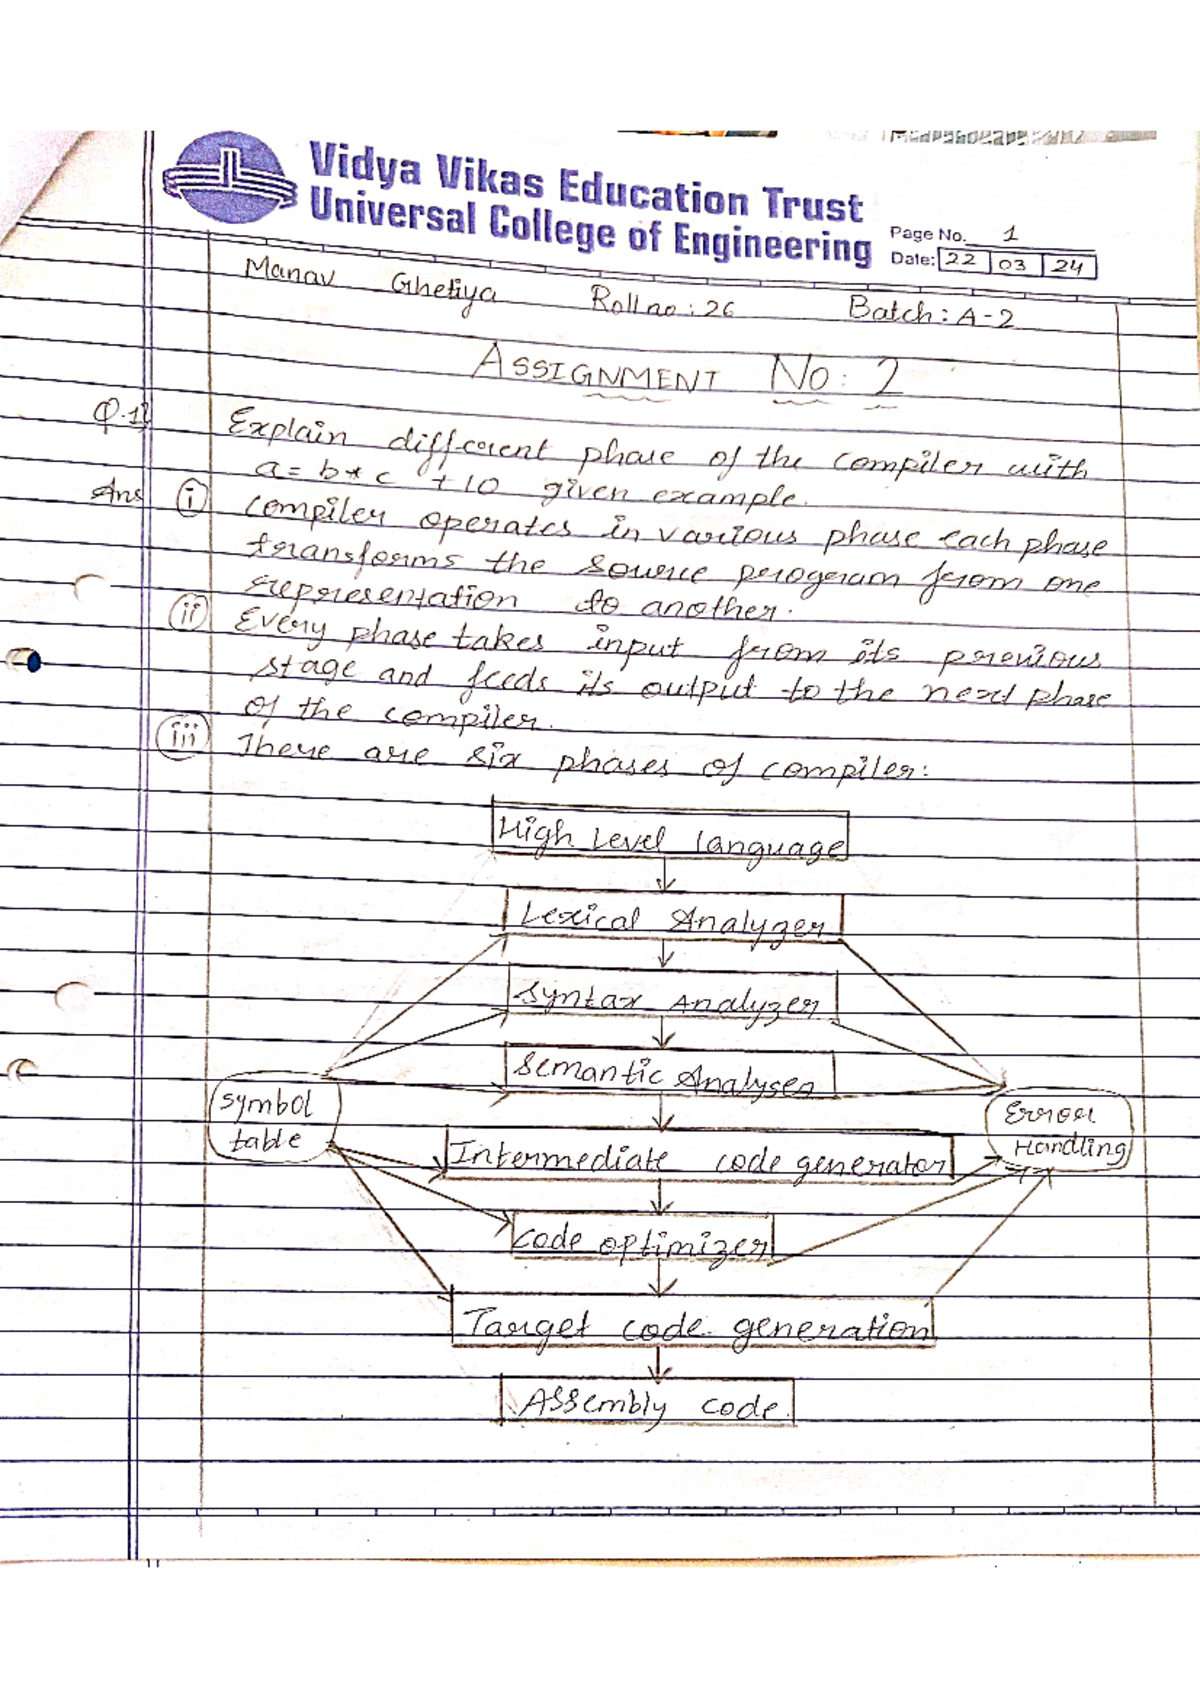 Vidya Vikas Education Trust
Universal College of Engineering
Page No. 1
Date: 22 03 24
Manav Ghetiya Roll no: 26 Batch: A-2
ASSIGNMENT No: 2
Q.1] Explain different phase of the compiler with
a = b * c + 10 given example.
Ans (i) compiler operates in various phase each phase
transforms the source program from one
representation to another.
(ii) Every phase takes input from its previous
stage and feeds its output to the next phase
of the compiler.
(iii) There are six phases of compiler:
High Level language
Lexical Analyzer
Syntax Analyzer
Semantic Analyses
symbol
table
Error
Handling
Intermediate code generator
code optimizer
Target code generation
Assembly code.